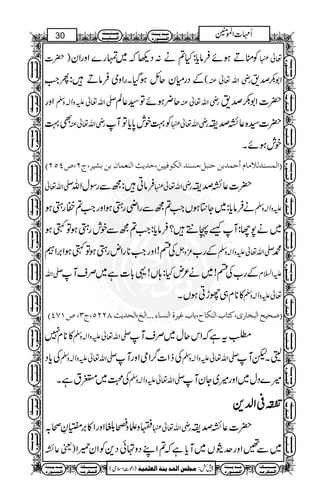 اُمہات المؤمنین
30
تعالیٰ عنہا کو مناتے ہوئے فرمایا: کیا تم نے نہ دیکھا کہ میں تمہارے اور ان (حضرت
ابوبکر صدیق رضی اللہ تعالیٰ عنہ) کے درمیان حائل ہوگیا۔ راوی فرماتے ہیں: جب پھر
حضرت ابوبکر صدیق رضی اللہ تعالیٰ عنہ حاضر ہوئے تو سید عالم صلی اللہ تعالیٰ علیہ والہ وسلم اور
حضرت سیدہ عائشہ صدیقہ رضی اللہ تعالیٰ عنہا کو بہت خوش پایا تو آپ رضی اللہ تعالیٰ عنہ بھی بہت
خوش ہوئے۔
(المسند للامام احمد بن حنبل، مسند الکوفیین، حدیث النعمان بن بشیر، ج۶، ص۲۵۴)
حضرت عائشہ صدیقہ رضی اللہ تعالیٰ عنہا فرماتی ہیں: مجھ سے رسول اللہ صلی اللہ تعالیٰ
علیہ والہ وسلم نے فرمایا: میں جانتا ہوں جب تم مجھ سے راضی رہتی ہو اور جب تم خفا رہتی ہو
میں نے پوچھا: آپ کیسے پہچانتے ہیں؟ فرمایا: جب تم مجھ سے خوش رہتی ہو تو کہتی ہو
محمد صلی اللہ تعالیٰ علیہ والہ وسلم کے رب عزوجل کی قسم! اور جب ناراض رہتی ہو تو کہتی ہو ابراہیم
علیہ السلام کے رب کی قسم! میں نے عرض کیا: ہاں! یہی بات ہے میں صرف آپ صلی اللہ
تعالیٰ علیہ والہ وسلم کا نام ہی چھوڑتی ہوں۔
(صحیح البخاری، کتاب النکاح، باب غیرۃ النساء...الخ، الحدیث ۵۲۲۸، ج۳، ص ۴۷۱)
مطلب یہ ہے کہ اس حال میں صرف آپ صلی اللہ تعالیٰ علیہ والہ وسلم کا نام نہیں
لیتی۔ لیکن آپ صلی اللہ تعالیٰ علیہ والہ وسلم کی ذات گرامی اور آپ صلی اللہ تعالیٰ علیہ والہ وسلم کی یاد
میرے دل میں اور میری جان آپ صلی اللہ تعالیٰ علیہ والہ وسلم کی محبت میں مستغرق ہے۔
تفقہ فی الدین
حضرت عائشہ صدیقہ رضی اللہ تعالیٰ عنہا فقہا و علماء و فصحا و بلغا اور اکابر مفتیان صحابہ
میں سے تھیں اور حدیثوں میں آیا ہے کہ تم اپنے دو تہائی دین کو ان حمیرا (یعنی عائشہ
پیش کش: مجلس المدینۃ العلمیۃ (دعوتِ اسلامی)